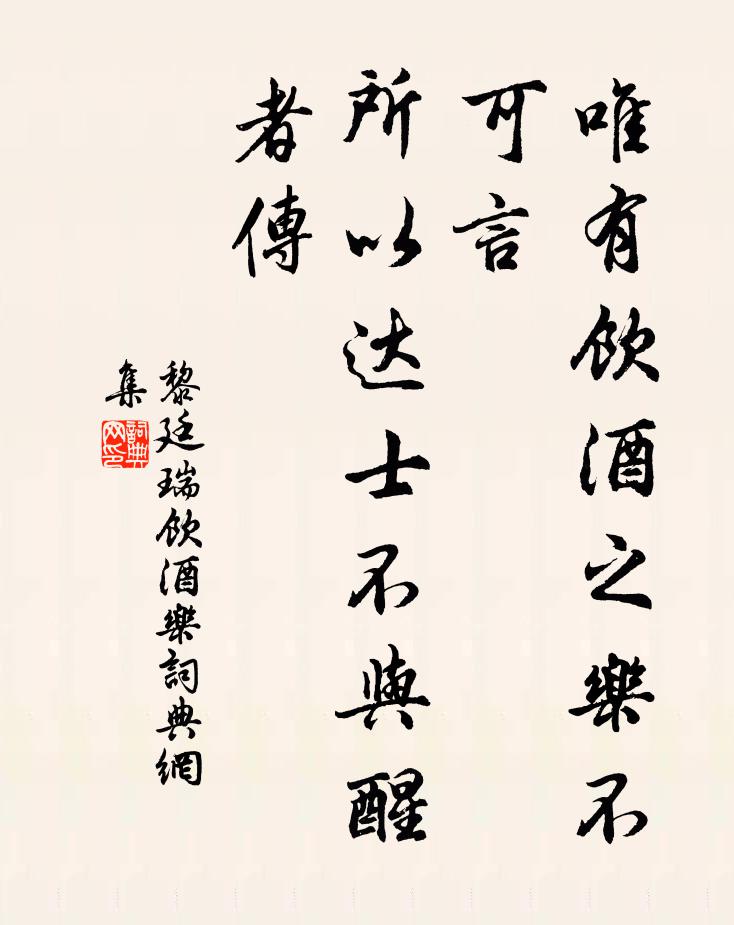 唯有飲酒之樂不
可言
所以达士不與醒
者傳
黎廷瑞飲酒樂詞典網
集
詞典
网印